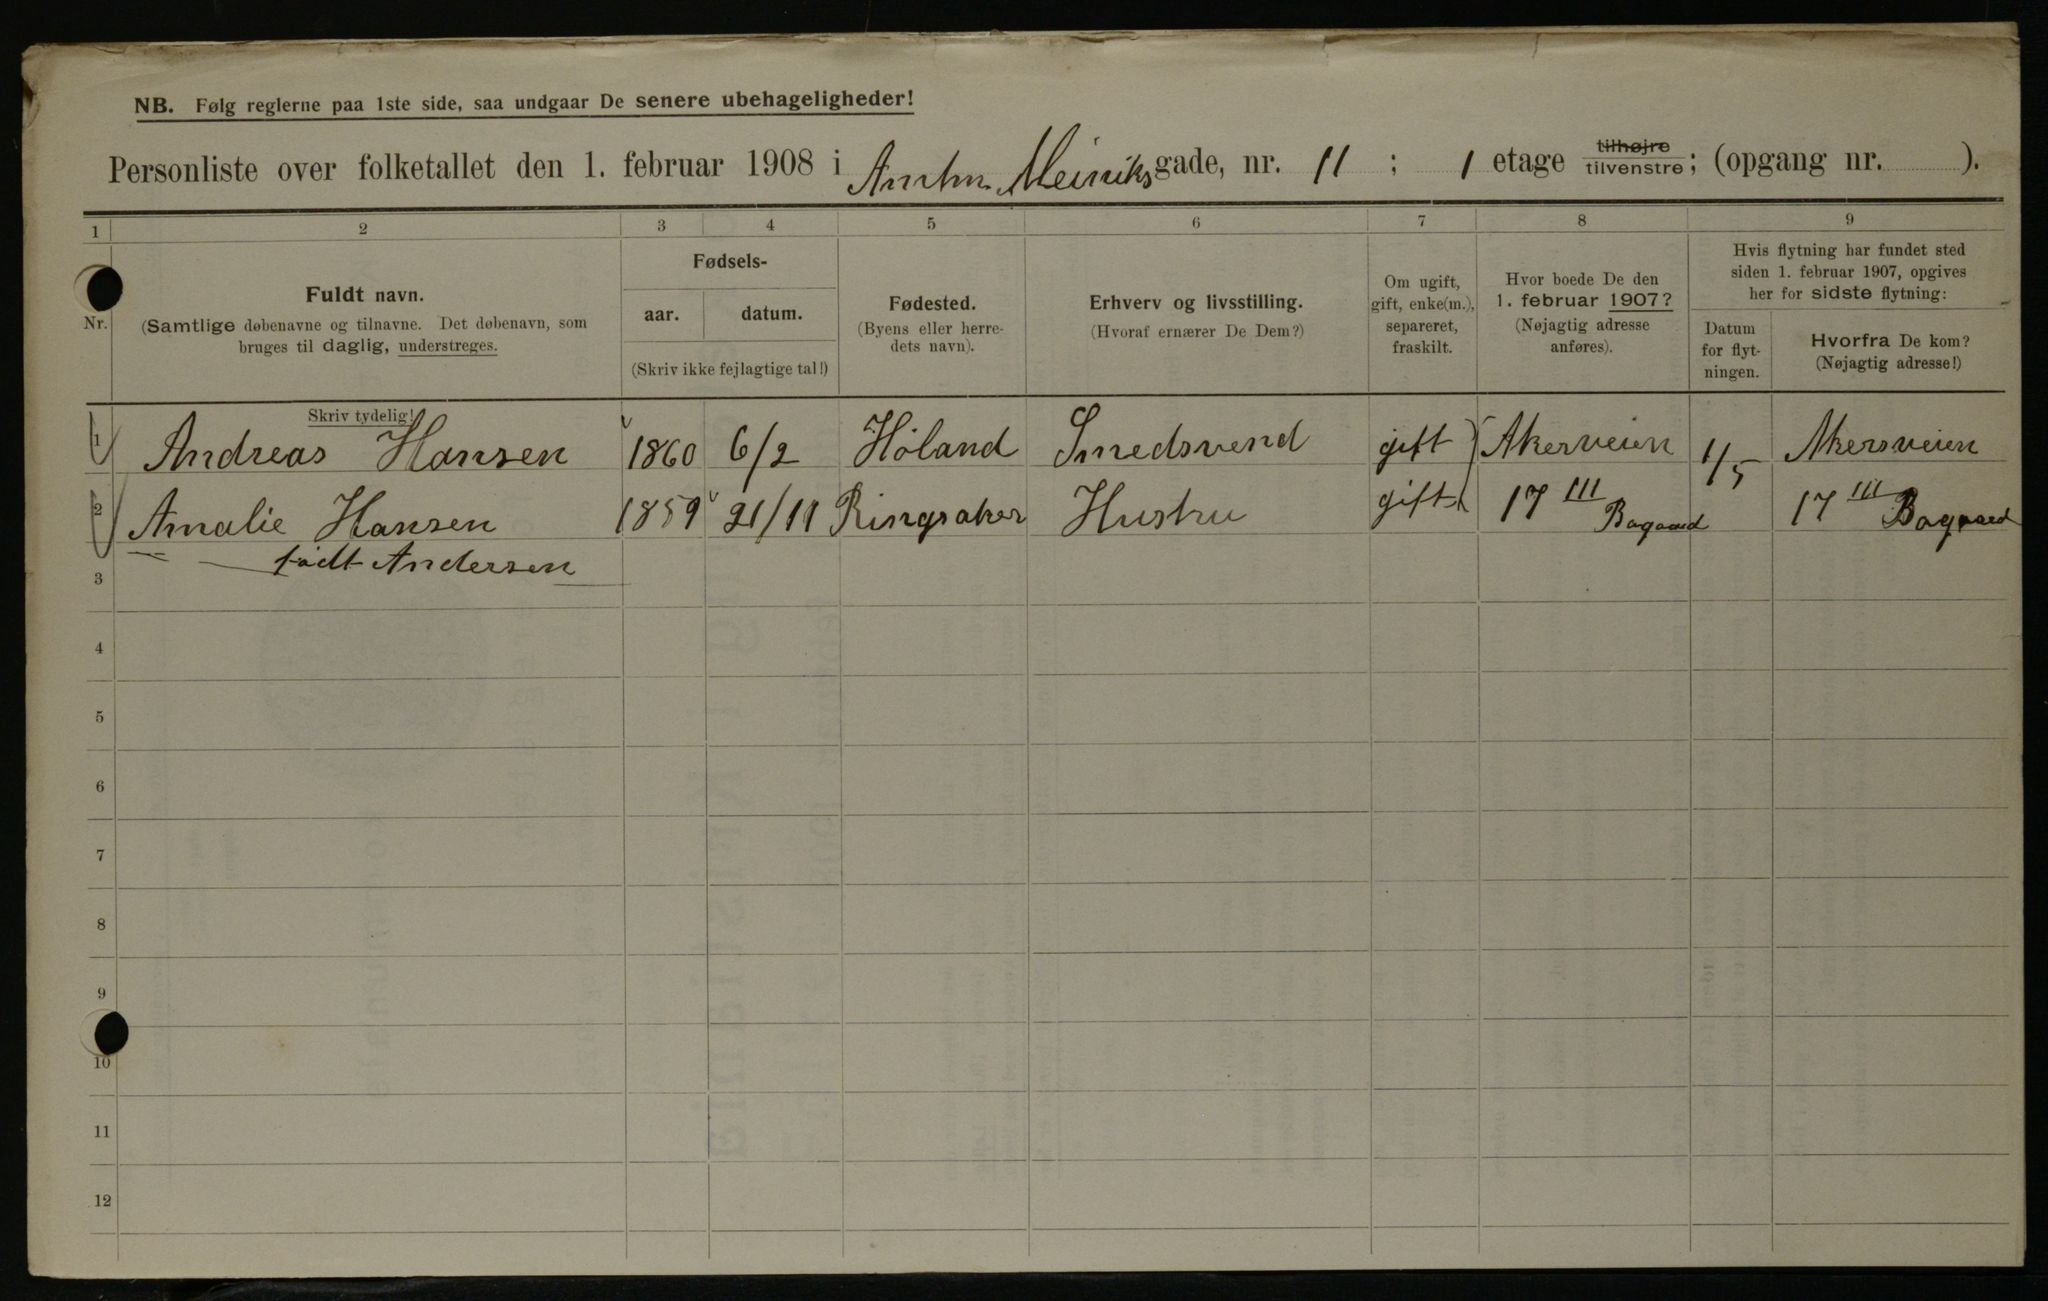 NB. Følg reglerne paa 1ste side, saa undgaar De senere ubehageligheder!
Personliste over folketallet den 1. februar 1908 i Meiriks gade, nr. 11 ; 1 etage tilhøjre tilvenstre; (opgang nr. ).
1 2 3 4 5 6 7 8 9
Nr.
Fuldt navn.
(Samtlige døbenavne og tilnavne. Det døbenavn, som
bruges til daglig, understreges.
Fødsels-
aar. datum.
(Skriv ikke fejlagtige tal!)
Fødested.
(Byens eller herre-
dets navn).
Erhverv og livsstilling.
(Hvoraf ernærer De Dem?)
Om ugift,
gift, enke(m.),
separeret,
fraskilt.
Hvor boede De den
1. februar 1907?
(Nøjagtig adresse
anføres).
Hvis flytning har fundet sted
siden 1. februar 1907, opgives
her for sidste flytning:
Datum
for flyt-
ningen.
Hvorfra De kom?
(Nøjagtig adresse!)
Skriv tydelig!
1 Andreas Hansen 1860 6/2 Høland Smedsvend gift Akerveien 1/5 Akersveien
2 Amalie Hansen 1859 21/11 Ringsaker Hustru gift 17 III Bagaard 17 III Bagaard
født Andersen
3
4
5
6
7
8
9
10
11
12